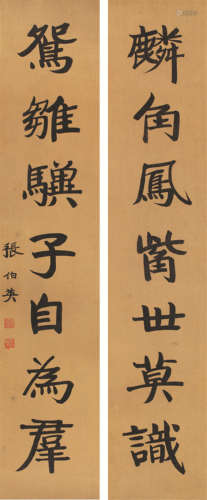 麟角鳳觜世莫識
鴛雛驥子自為羣
張伯英